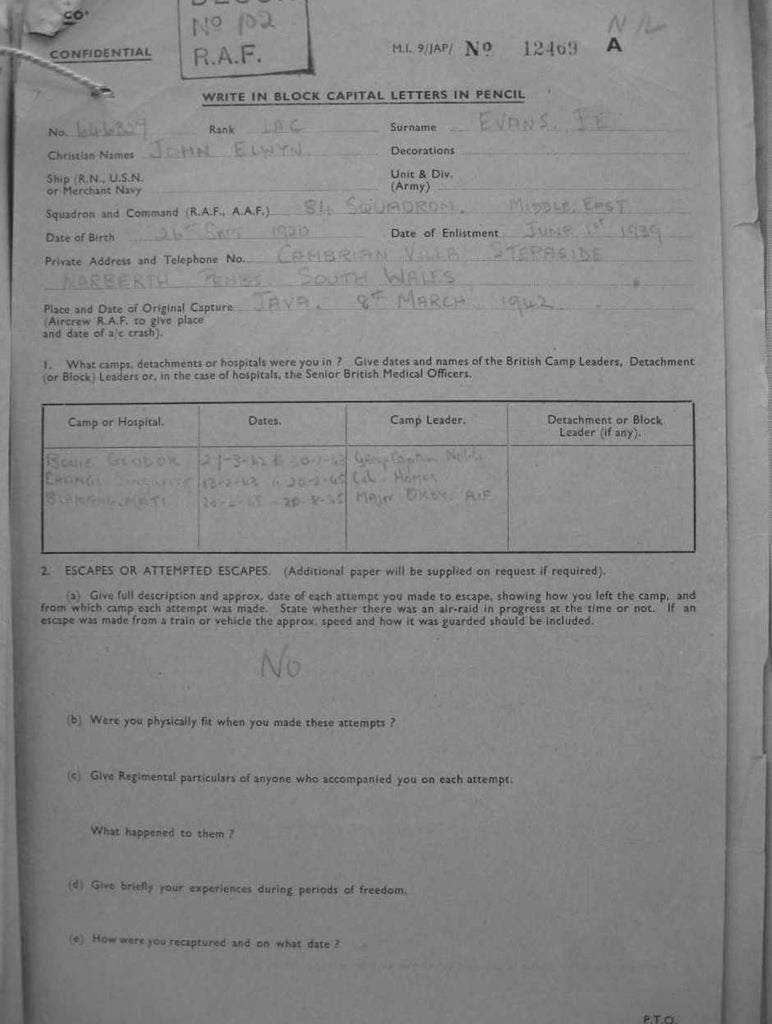 CO'
No 102
R.A.F.
N/L
CONFIDENTIAL
M.I. 9/JAP/ No 12469 A
WRITE IN BLOCK CAPITAL LETTERS IN PENCIL
No. 646327 Rank LAC Surname EVANS. JE
Christian Names JOHN ELWYN Decorations
Ship (R.N., U.S.N. Unit & Div.
or Merchant Navy (Army)
Squadron and Command (R.A.F., A.A.F.) 84 SQUADRON. MIDDLE. EAST
Date of Birth 26 SEPT 1920 Date of Enlistment JUNE 1ST 1939
Private Address and Telephone No. CAMBRIAN VILLA STEPASIDE
NARBERTH PEMBS. SOUTH WALES
Place and Date of Original Capture JAVA. 8TH MARCH 1942
(Aircrew R.A.F. to give place
and date of a/c crash).
1. What camps, detachments or hospitals were you in ? Give dates and names of the British Camp Leaders, Detachment
(or Block) Leaders or, in the case of hospitals, the Senior British Medical Officers.
Camp or Hospital. Dates. Camp Leader. Detachment or Block
Leader (if any).
BOUIE GLODOK 27-3-42 30-1-43 Group Captain Noble
CHANGI 13-2-43 20-2-45 Col. Homes
BLAKANG. MATI 20-2-45 - 20-8-45 Major OKEY. AIF
2. ESCAPES OR ATTEMPTED ESCAPES. (Additional paper will be supplied on request if required).
(a) Give full description and approx. date of each attempt you made to escape, showing how you left the camp, and
from which camp each attempt was made. State whether there was an air-raid in progress at the time or not. If an
escape was made from a train or vehicle the approx. speed and how it was guarded should be included.
NO
(b) Were you physically fit when you made these attempts ?
(c) Give Regimental particulars of anyone who accompanied you on each attempt.
What happened to them ?
(d) Give briefly your experiences during periods of freedom.
(e) How were you recaptured and on what date ?
P.T.O.